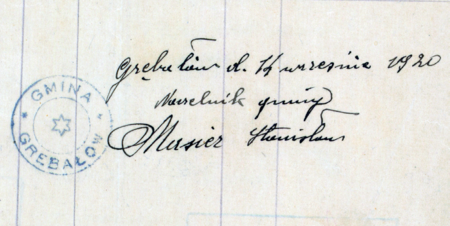 Grębałów d. 14 września 1920
Naczelnik gminy
Masier Stanisław
GMINA
GRĘBAŁÓW